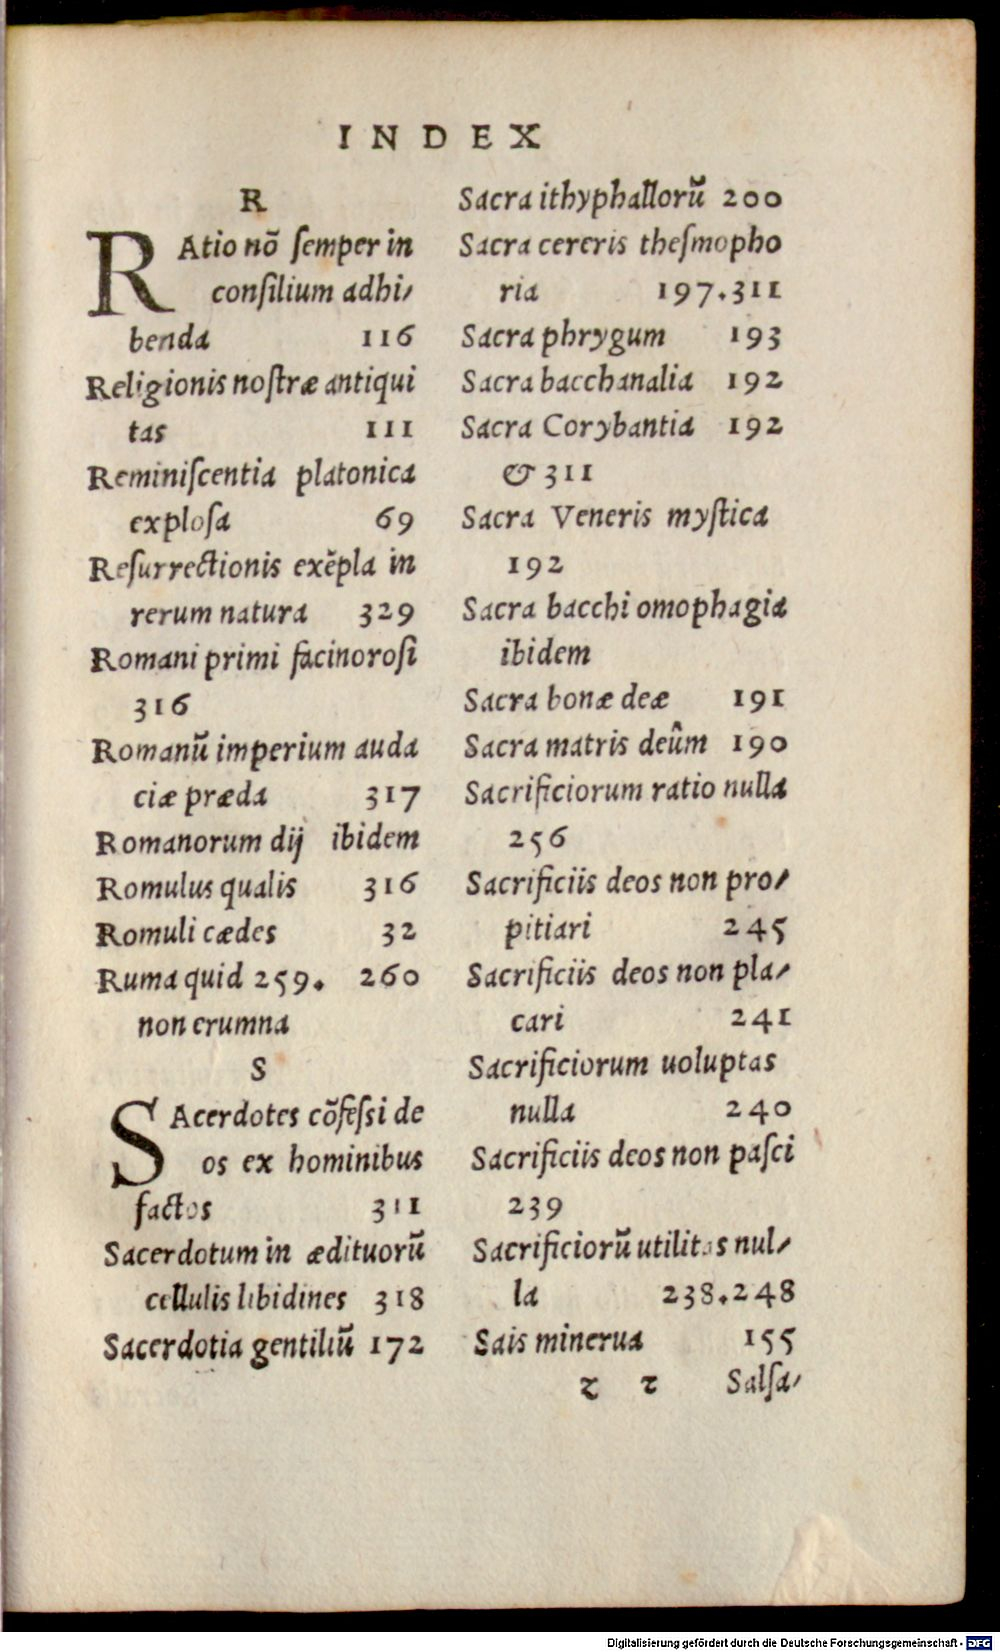 INDEX
R
RAtio nō ſemper in
conſilium adhi⸗
benda 116
Religionis noſtræ antiqui
tas 111
Reminiſcentia platonica
exploſa 69
Reſurrectionis exẽpla in
rerum natura 329
Romani primi facinoroſi
316
Romanũ imperium auda
ciæ præda 317
Romanorum dij ibidem
Romulus qualis 316
Romuli cædes 32
Ruma quid 259. 260
non erumna
S
SAcerdotes cōfeſsi de
os ex hominibus
factos 311
Sacerdotum in ædituorũ
cellulis libidines 318
Sacerdotia gentiliũ 172
Sacra ithyphallorũ 200
Sacra cereris theſmopho
ria 197.311
Sacra phrygum 193
Sacra bacchanalia 192
Sacra Corybantia 192
& 311
Sacra Veneris myſtica
192
Sacra bacchi omophagia
ibidem
Sacra bonæ deæ 191
Sacra matris deûm 190
Sacrificiorum ratio nulla
256
Sacrificiis deos non pro⸗
pitiari 245
Sacrificiis deos non pla⸗
cari 241
Sacrificiorum uoluptas
nulla 240
Sacrificiis deos non paſci
239
Sacrificiorũ utilitas nul⸗
la 238.248
Sais minerua 155
z z Salſa⸗
Digitalisierung gefördert durch die Deutsche Forschungsgemeinschaft - DFG